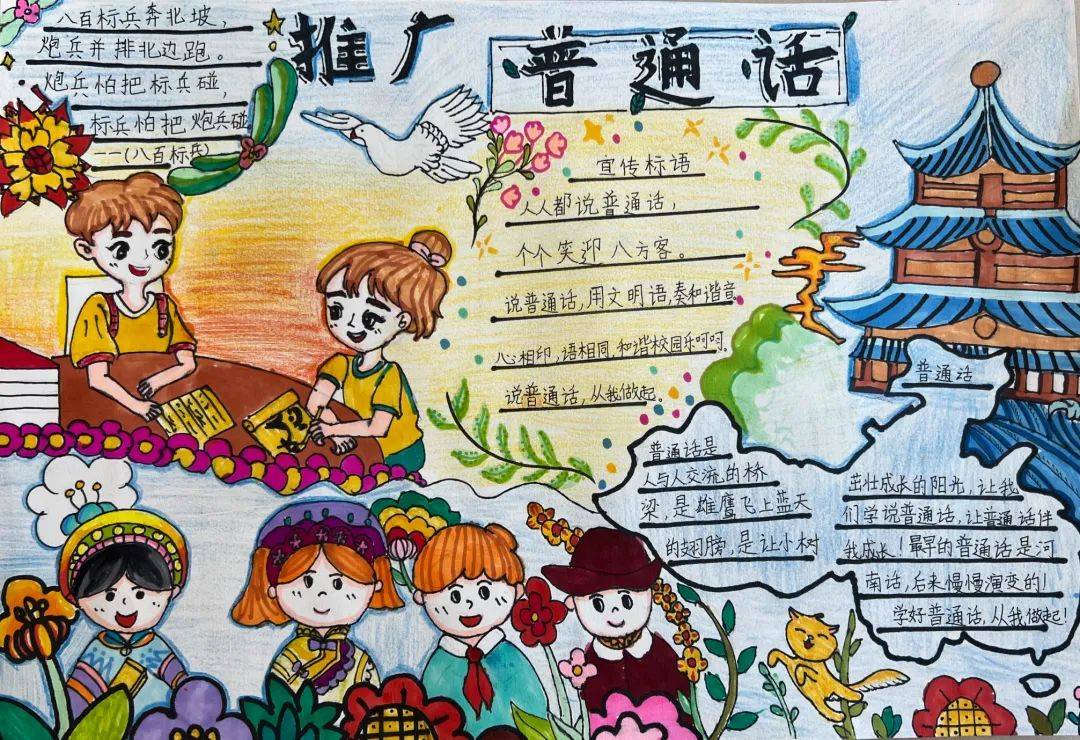 八百标兵奔北坡，
炮兵并排北边跑。
炮兵怕把标兵碰，
标兵怕把炮兵碰
——(八百标兵)
推广普通话
宣传标语
人人都说普通话，
个个笑迎八方客。
说普通话，用文明语，奏和谐音。
心相印，语相同，和谐校园乐呵呵。
说普通话，从我做起。
普通话
普通话是
人与人交流的桥
梁，是雄鹰飞上蓝天
的翅膀，是让小树
茁壮成长的阳光，让我
们学说普通话，让普通话伴
我成长！最早的普通话是河
南话，后来慢慢演变的！
学好普通话，从我做起！